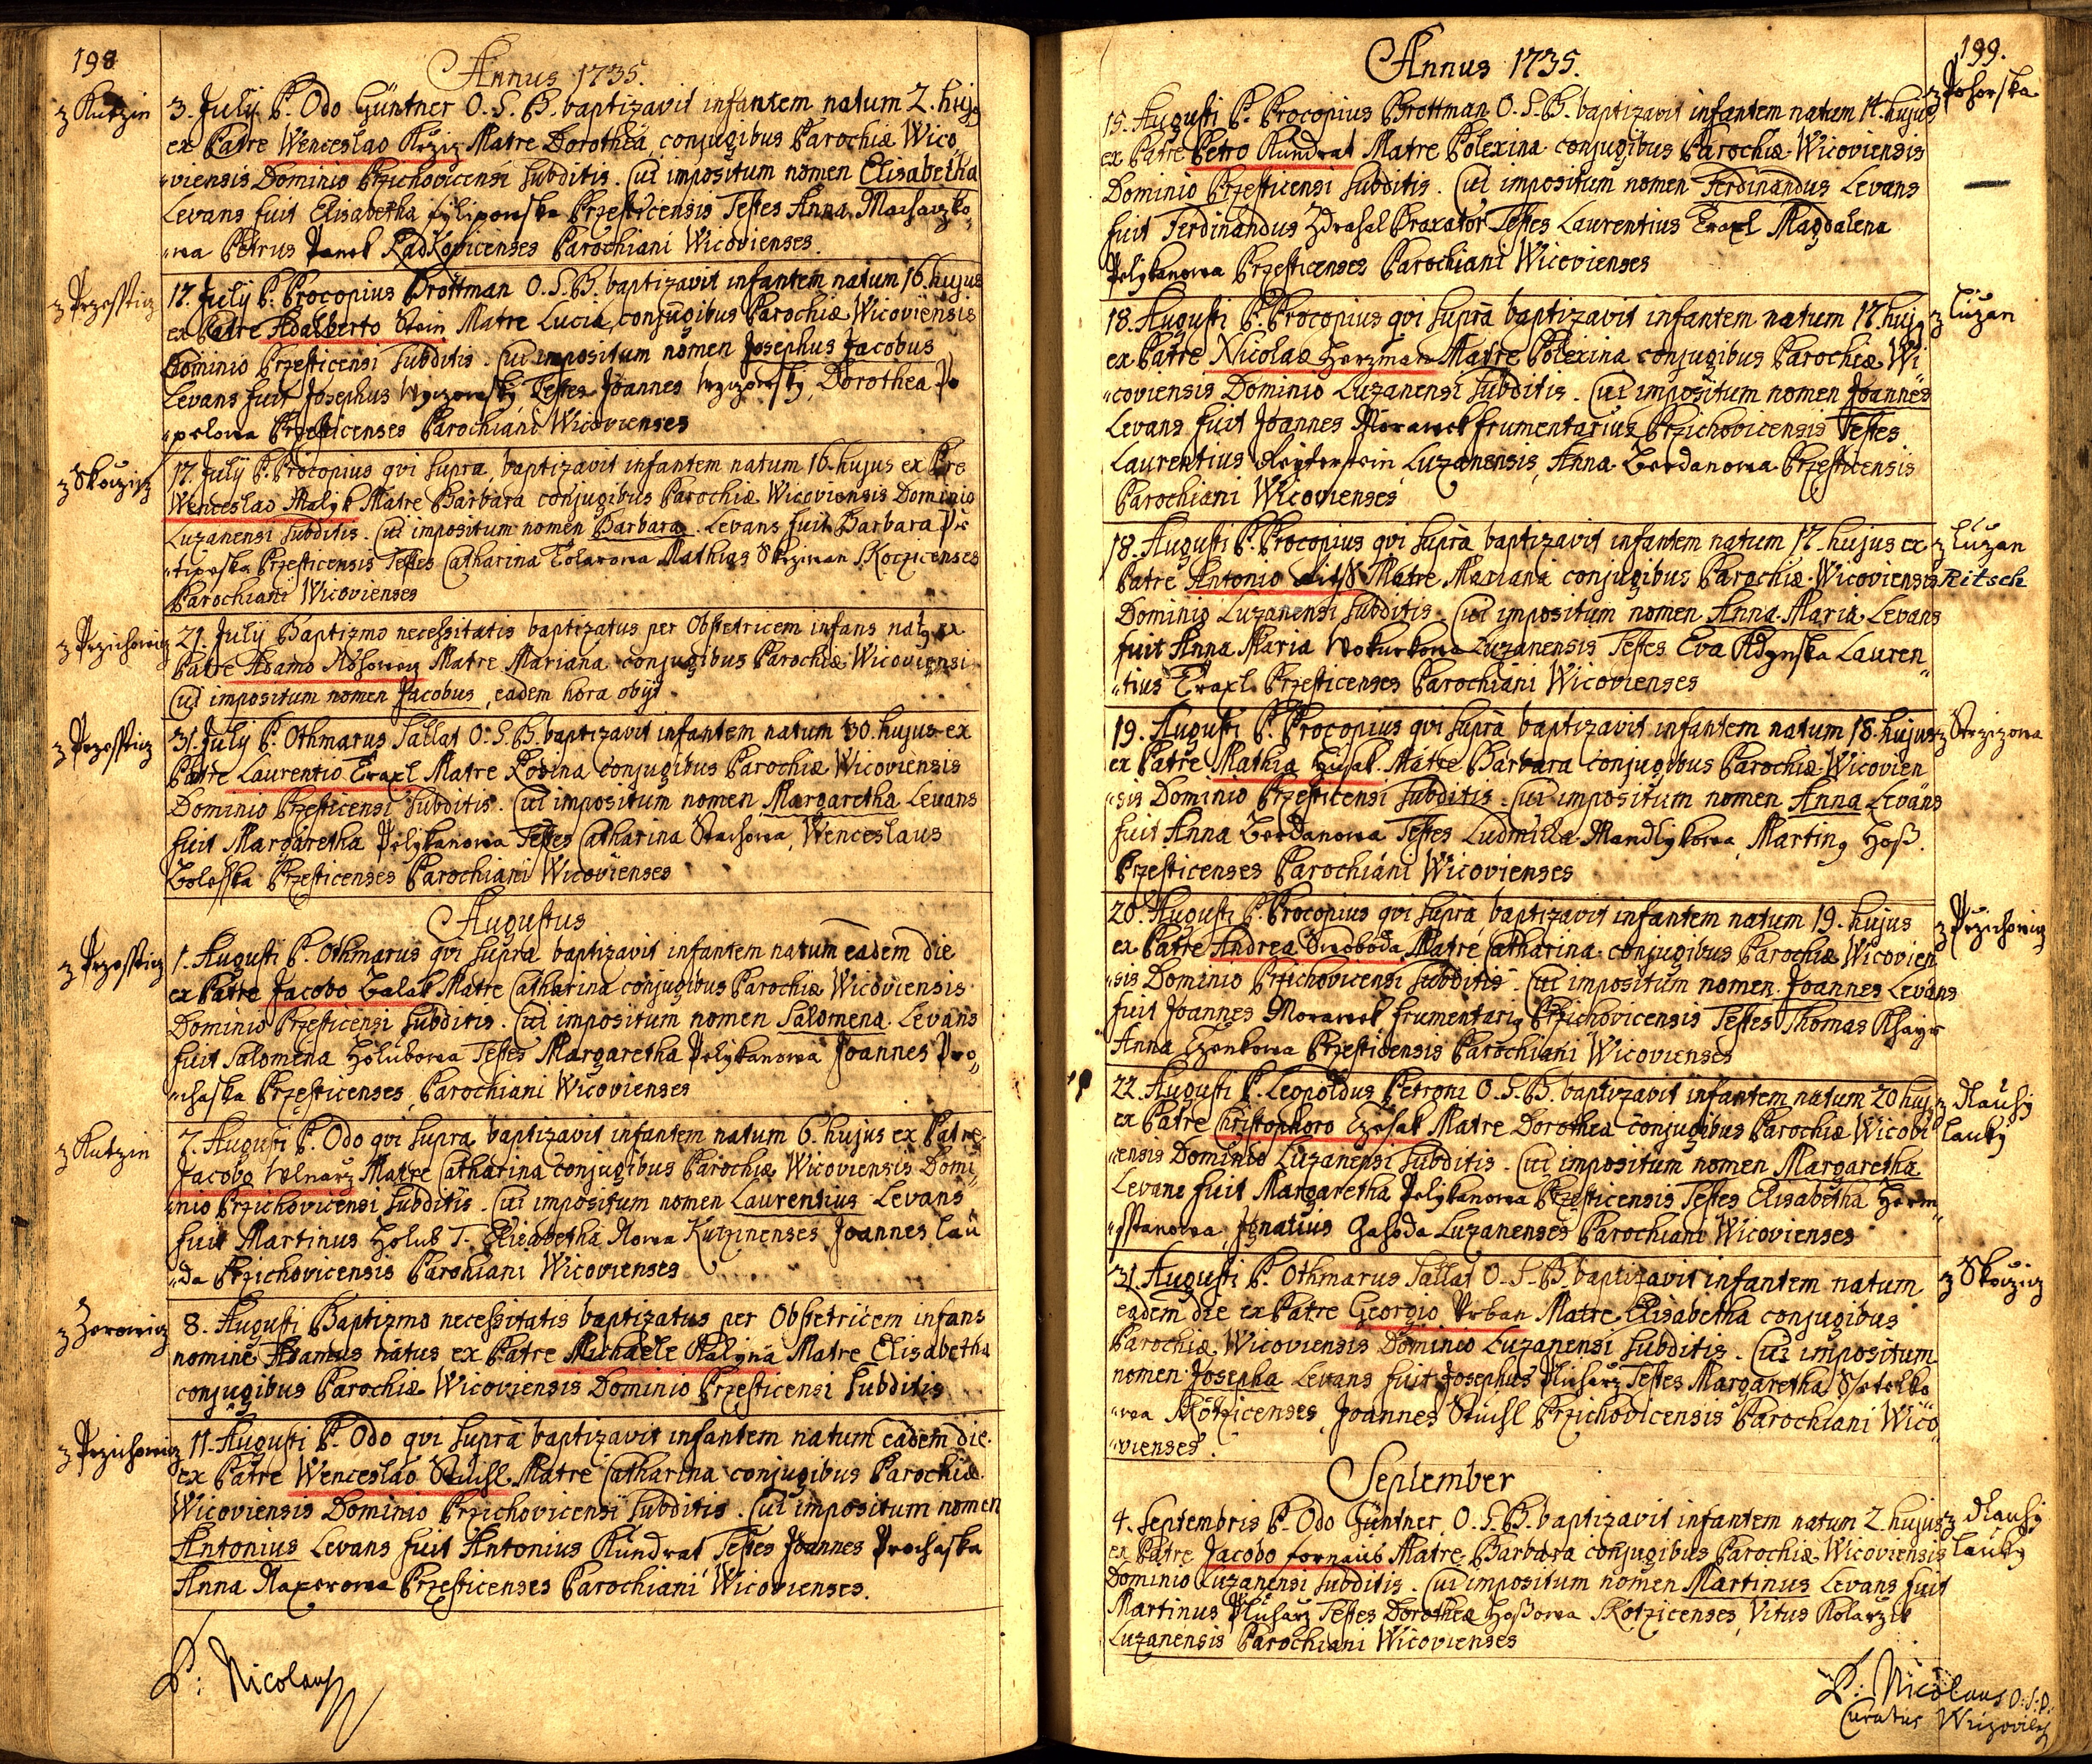 198
Annus 1735.
z Kutzin
3. July P. Odo Güntner O. S. B. baptizavit infantem natum 2. hujs
ex Patre Wenceslao Krziz Matre Dorothea, conjugibus Parochiæ Wico,
"viensis Dominio Przichovicensi subditis. Cui impositum nomen Elisabetha
Levans fuit Elisabetha Fylipowska Przesticensis Testes Anna
"wa Petrus Panek Radkovicenses Parochiani Wicovienses.
z Przesstig
17. July P. Procopius Brottman O. S. B. baptizavit infantem natum 16. hujus
ex Patre Adalberto Stein Matre Lucia, conjugibus Parochiæ Wicoviensis
Dominio Przesticensi subditis. Cui impositum nomen Josephus Jacobus
Levans fuit Josephus Testes Joannes Dorothea Po
"pelowa Przesticenses Parochiani Wicovienses
z Skoczicz
17. July P. Procopius qvi supra baptizavit infantem natum 16. hujus ex Pre
Wenceslao Malyk Matre Barbara conjugibus Parochiæ Wicoviensis Dominio
Luzanensi subditis. Cui impositum nomen Barbara. Levans fuit Barbara
Przesticensis Testes Catharina Kolarowa Mathias Skrziwan Skoczicenses
Parochiani Wicovienses
z Przichowig
21. July Baptizmo necessitatis baptizatus per Obstetricem infans natq ex
Patre Adamo Matre Mariana conjugibus Parochiæ Wicoviensi
Cui impositum nomen Jacobus, eadem hora obyt.
z Przesstig
31. July P. Othmarus Sallat O. S. B. baptizavit infantem natum 30. hujus ex
Patre Laurentio Traxl Matre Rosina conjugibus Parochiæ Wicoviensis
Dominio Przesticensi subditis. Cui impositum nomen Margaretha Levans
fuit Margaretha Pelykanowa Testes Catharina Stachowa, Wenceslaus
Boleska Przesticenses Parochiani Wicovienses
Augustus
z Przesstig
1. Augusti P. Othmarus qvi supra baptizavit infantem natum eadem die
ex Patre Jacobo Balak Matre Catharina conjugibus Parochiæ Wicoviensis
Dominio Przesticensi subditis. Cui impositum nomen Salomena Levans
fuit Salomena Holubowa Testes Margaretha Pelykanowa Joannes Pro"
"chaska Przesticenses Parochiani Wicovienses
z Kutzin
7. Augusti P. Odo qvi supra baptizavit infantem natum 6. hujus ex Patre
Jacobo Wlnarz Matre Catharina conjugibus Parochiæ Wicoviensis Domi"
"nio Przichovicensi subditis. Cui impositum nomen Laurentius Levans
fuit Martinus Holub T. Elisabetha Nowa Kutzinenses Joannes Lau
"da Przichovicensis Parohiani Wicovienses
z Zerowig
8. Augusti Baptizmo necessitatis baptizatus per Obstetricem infans
nomine Adamus natus ex Patre Michaele Kalyna Matre Elisabetha
conjugibus Parochiæ Wicoviensis Dominio Przesticensi subditis
z Przichowig
11. Augusti P. Odo qvi supra baptizavit infantem natum eadem die
ex Patre Wenceslao Stuchl Matre Catharina conjugibus Parochiæ
Wicoviensis Dominio Przichovicensi subditis. Cui impositum nomen
Antonius Levans fuit Antonius Kundrat Testes Joannes Prochaska
Anna Naxerowa Przesticenses Parochiani Wicovienses.
P: Nicolaus
199.
Annus 1735.
z Pohorska
15. Augusti P. Procopius Brottman O. S. B. baptizavit infantem natum 14. hujus
ex Patre Petro Kundrat Matre Polexina conjugibus Parochiæ Wicoviensis
Dominio Przesticensi subditis. Cui impositum nomen Ferdinandus Levans
fuit Ferdinandus Zdrahal Braxator Testes Laurentius Traxl Magdalena
Pelykanowa Przesticenses Parochiani Wicovienses
z Luzan
18. Augusti P. Procopius qvi supra baptizavit infantem natum 17. huj9
ex Patre Nicolao Herzman Matre Polexina conjugibus Parochiæ Wi
"coviensis Dominio Luzanensi subditis. Cui impositum nomen Joannes
Levans fuit Joannes Morawek frumentarius Przichovicensis Testes
Laurentius Reyterstein Luzanensis, Anna Berdanowa Przesticensis
Parochiani Wicovienses
z Luzan
Ritsch
18. Augusti P. Procopius qvi supra baptizavit infantem natum 17. hujus ex
Patre Antonio Matre Mariana conjugibus Parochiæ Wicoviensis
Dominio Luzanensi subditis. Cui impositum nomen Anna Maria Levans
fuit Anna Maria Wokurkowa Luzanensis Testes Eva Adynska Lauren"
"tius Traxl Przesticenses Parochiani Wicovienses
z Strzizowa
19. Augusti P. Procopius qvi supra baptizavit infantem natum 18. hujus
ex Patre Mathia Husak Matre Barbara conjugibus Parochiæ Wicovien
"sis Dominio Przesticensi subditis. Cui impositum nomen Anna Levans
fuit Anna Berdanowa Testes Ludmilla Mandlykowa, Martin9 Hoß.
Przesticenses Parochiani Wicovienses
z Przichowig
20. Augusti P. Procopius qvi supra baptizavit infantem natum 19. hujus
ex Patre Andrea Swoboda Matre Catharina conjugibus Parochiæ Wicovien
"sis Dominio Przichovicensi subditis. Cui impositum nomen Joannes Levans
fuit Joannes Morawek frumentari9 Przichovicensis Testes Thomas
Anna Czenkowa Przesticensis Parochiani Wicovienses
22. Augusti P. Leopoldus Petroni O. S. B. baptizavit infantem natum 20 huj9
z Dlauhy
lauky
ex Patre Christophoro Czesak Matre Dorothea conjugibus Parochiæ Wicovi
"ensis Dominio Luzanensi subditis. Cui impositum nomen Margaretha
Levans fuit Margaretha Pelykanowa Przesticensis Testes Elisabetha Herm"
"sstanowa, Ignatius Gahoda Luzanenses Parochiani Wicovienses
z Skoczicz
31. Augusti P. Othmarus Sallat O. S. B. baptizavit infantem natum
eadem die ex Patre Georgio Urban Matre Elisabetha conjugibus
Parochiæ Wicoviensis Dominio Luzanensi subditis. Cui impositum
nomen Josepha Levans fuit Josephus Pluharz Testes Margaretha
"wa Skotzicenses, Joannes Stuchl Przichovicensis Parochiani Wico"
"vienses.
September
4. Septembris P. Odo Güntner O. S. B. baptizavit infantem natum 2. hujus
z Dlauhy
lauky
ex Patre Jacobo Fornaus Matre Barbara conjugibus Parochiæ Wicoviensis
Dominio Luzanensi subditis. Cui impositum nomen Martinus Levans fuit
Martinus Pluharz Testes Dorothea Hoßowa Skotzicenses, Vitus Kolarzik
Luzanensis Parochiani Wicovienses
P: Nicolaus O. S. B.
Curatus